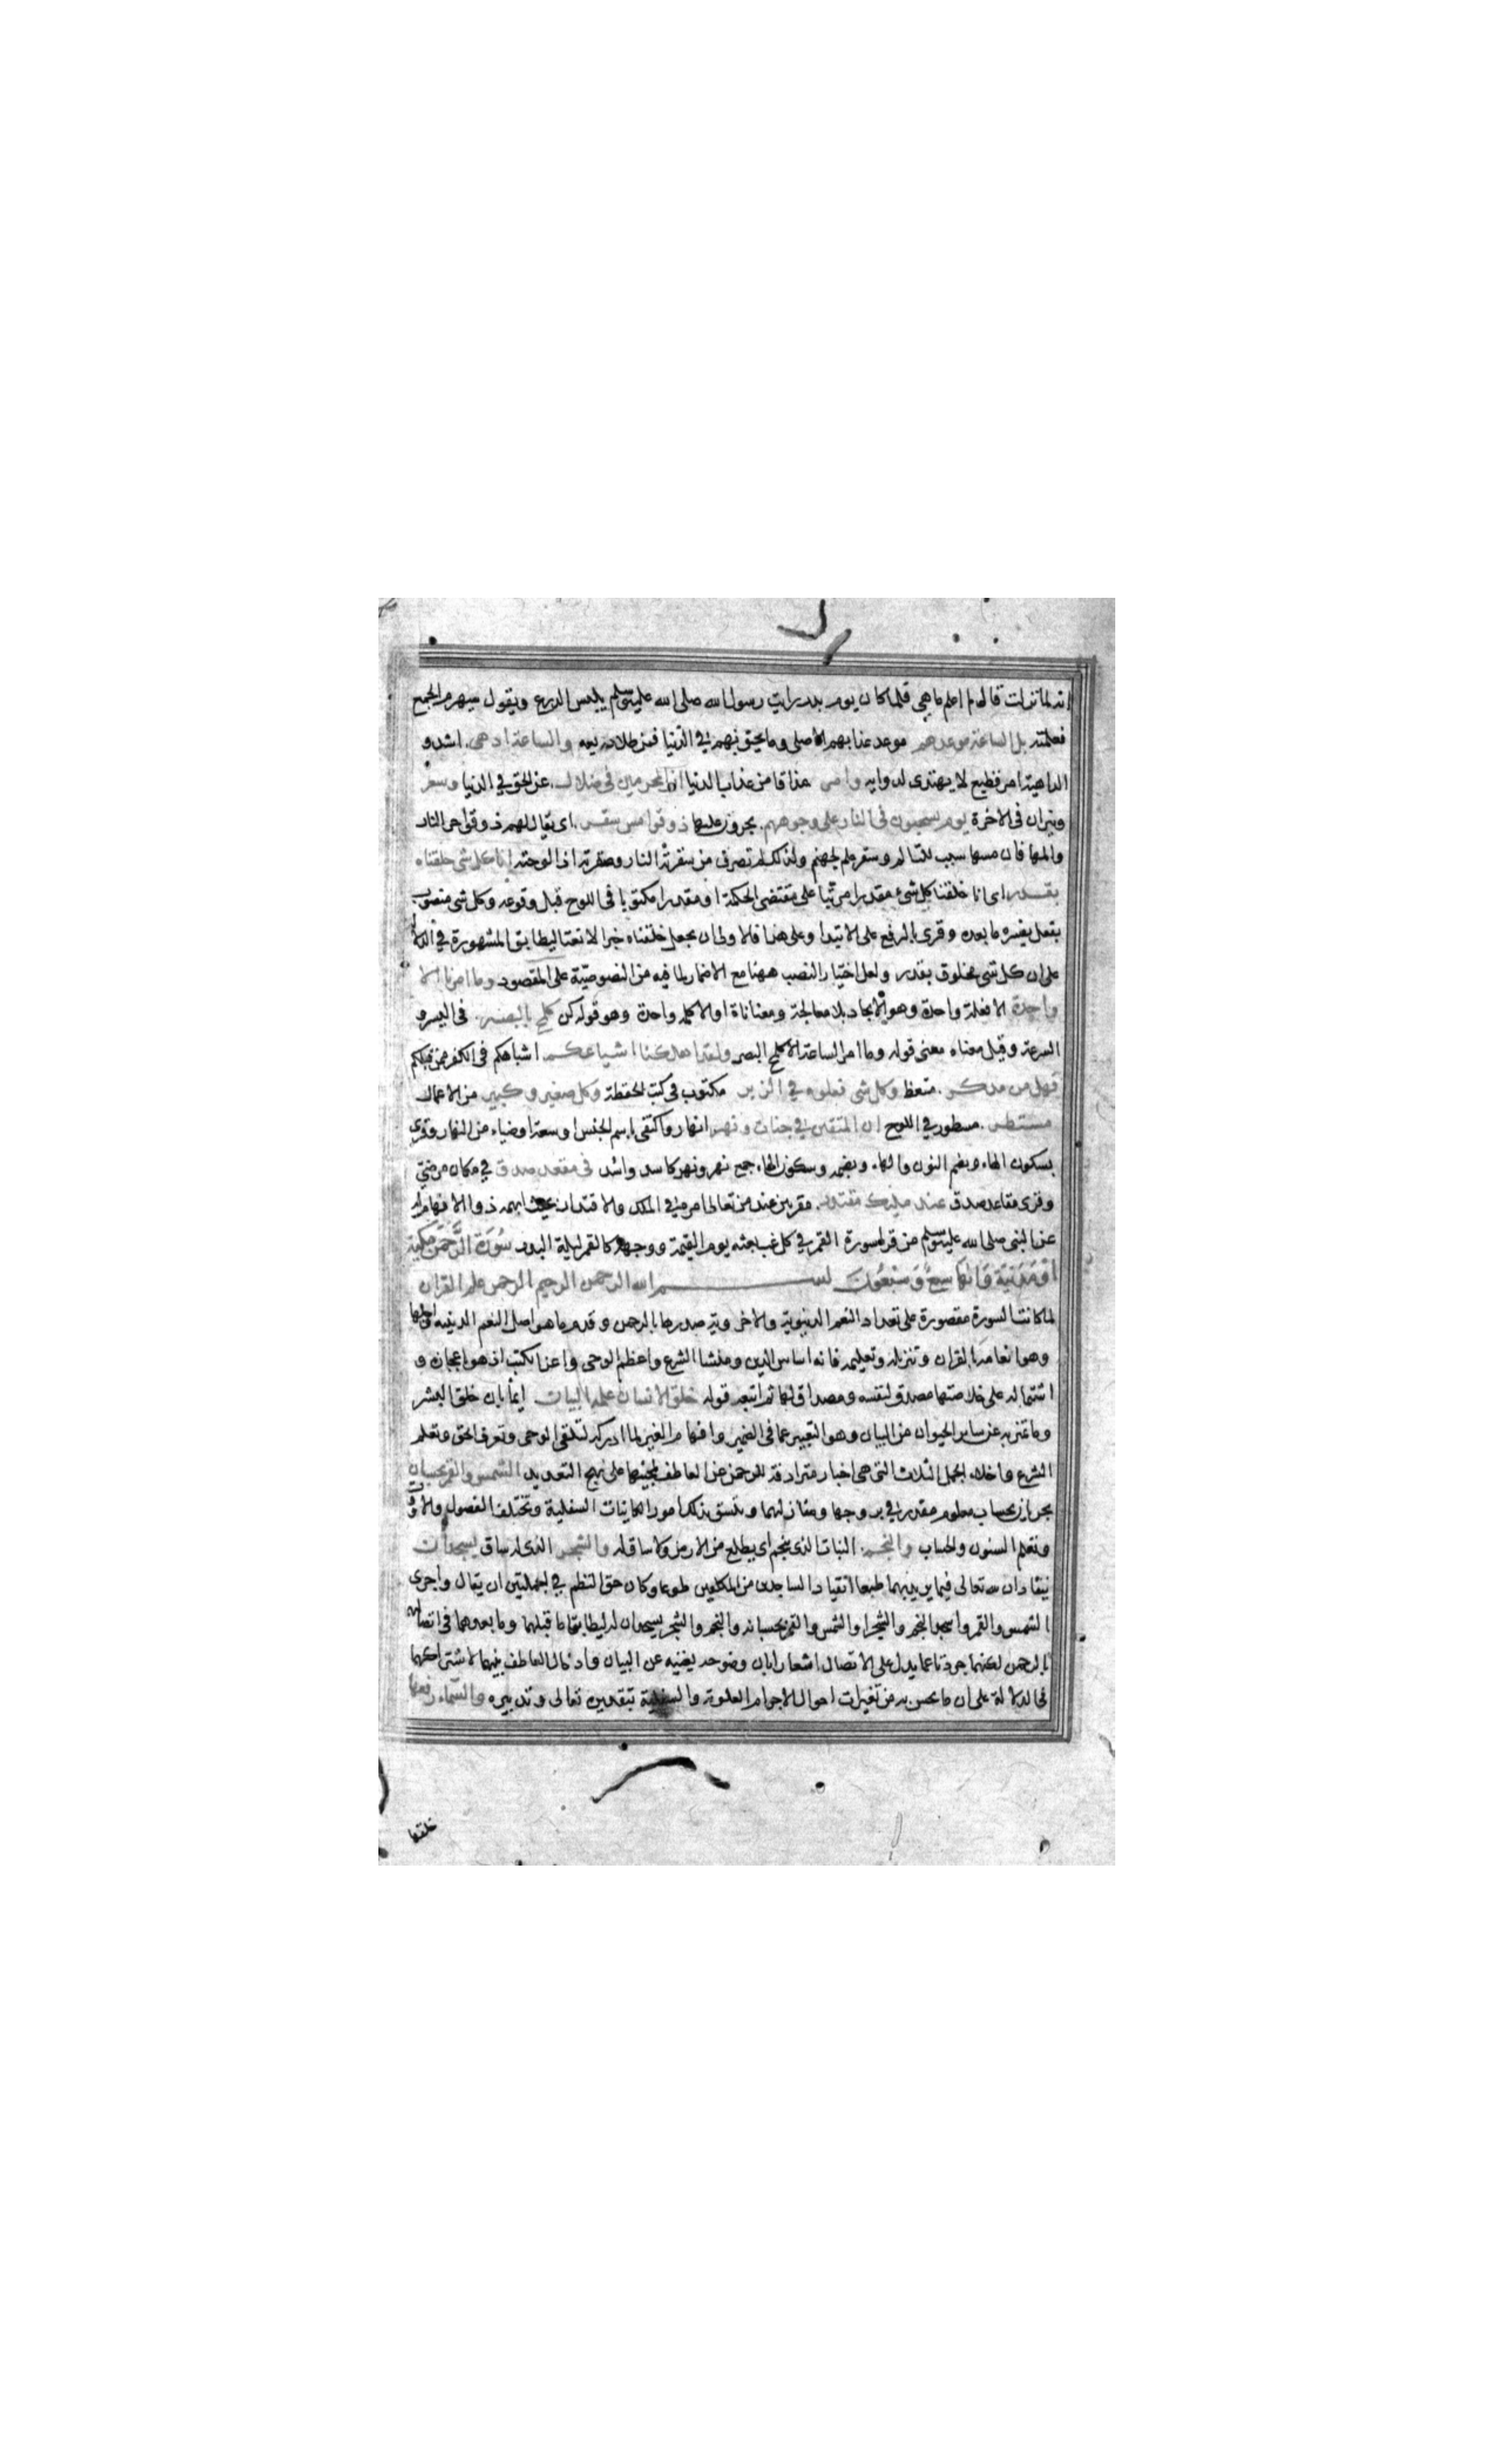 انه لما نزلت قال لم اعلم ما هى فلما كان يوم بدر رايت رسول الله صلى الله عليه وسلم يلبس الدرع ويقول سيهزم الجمع
فعلمته بل الساعة موعدهم موعد عذابهم الاصلى وما يحيق بهم في الدنيا فمن طلائعه والساعة ادهى اشد و
الداهية امر فظيع لا يهتدى لدوايه وامر مذاقا من عذاب الدنيا ان المجرمين فى ضلال عن الحق في الدنيا وسعر
ونيران فى الاخرة يوم يسحبون فى النار على وجوههم يجرون عليها ذوقوا مس سقر اى يقال لهم ذوقوا حر النار
والمها فان مسها سبب للتالم وسقر علم لجهنم ولذلك لم تصرف من سقرته النار وصقرته اذا لوحته انا كل شى خلقناه
بقدر اى انا خلقنا كل شئ مقدرا مرتبا على مقتضى الحكمة او مقدرا مكتوبا فى اللوح قبل وقوعه وكل شى منصوب
بفعل يفسره ما بعده وقرى بالرفع على الابتدا وعلى هذا فالاولى ان يجعل خلقناه خبرا لا نعتا ليطابق المشهورة في الدلالة
على ان كل شى مخلوق بقدر ولعل اختيار النصب ههنا مع الاضمار لما فيه من النصوصية على المقصود وما امرنا الا
واحدة الا فعلة واحدة وهو الايجاد بلا معالجة ومعاناة او الا كلمة واحدة وهو قوله كن كلمح بالبصر فى اليسر و
السرعة وقيل معناه معنى قوله وما امر الساعة الا كلمح البصر ولقد اهلكنا اشياعكم اشباهكم فى الكفر ممن قبلكم
فهل من مدكر متعظ وكل شى فعلوه في الزبر مكتوب فى كتب الحفظة وكل صغير وكبير من الاعمال
مستطر مسطور في اللوح ان المتقين في جنات ونهر انهار واكتفى باسم الجنس او سعة او ضياء من النهار وقرى
بسكون الهاء وبضم النون والهاء وبضم وسكون الهاء جمع نهر ونهر كاسد واسد فى مقعد صدق في مكان مرضى
وقرى مقاعد صدق عند مليك مقتدر مقربين عند من تعالى امره في الملك والاقتدار بحيث ابهمه ذوا الافهام
عن النبى صلى الله عليه وسلم من قرا سورة القمر في كل غب بعثه يوم القيمة ووجهه كالقمر ليلة البدر سورة الرحمن مكية
او مدنية وايها سبع وسبعون بسم الله الرحمن الرحيم الرحمن علم القران
لما كانت السورة مقصورة على تعداد النعم الدنيوية والاخروية صدرها بالرحمن وقدم ما هو اصل النعم الدينية واجلها
وهو انعامه بالقران وتنزيله وتعليمه فانه اساس الدين ومنشا الشرع واعظم الوحى واعز الكتب اذ هو باعجازه و
اشتماله على خلاصتها مصدق لنفسه ومصداق لها ثم اتبعه قوله خلق الانسان علمه البيان ايماء بان خلق البشر
وما تميز به عن ساير الحيوان من البيان وهو التعبير عما فى الضمير وافهام الغير لما ادركه لتلقى الوحى وتعرف الحق وتعلم
الشرع واخلاء الجمل الثلاث التى هى اخبار مترادفة للرحمن عن العاطف لمجيئها على نهج التعديد الشمس والقمر بحسبان
يجريان بحساب معلوم مقدر في بروجها ومنازلهما وتتسق بذلك امور الكاينات السفلية وتختلف الفصول والاوقات
وتعلم السنون والحساب والنجم النبات الذى ينجم اى يطلع من الارض ولا ساق له والشجر الذى له ساق يسجدان
ينقادان لله تعالى فيما يريد بهما طبعا انقياد الساجدين من المكلفين طوعا وكان حق النظم في الجملتين ان يقال واجرى
الشمس والقمر واسجد النجم والشجر او الشمس والقمر بحسبانه والنجم والشجر يسجدان له ليطابقا ما قبلهما وما بعدهما فى اتصالهما
بالرحمن لكنهما جردتا عما يدل على الاتصال اشعارا بان وضوحه يغنيه عن البيان وادخال العاطف بينهما لاشتراكهما
فى الدلالة على ان ما يحس به من تغيرات احوال الاجرام العلوية والسفلية بتقديره تعالى وتدبيره والسماء رفعها
خلقها